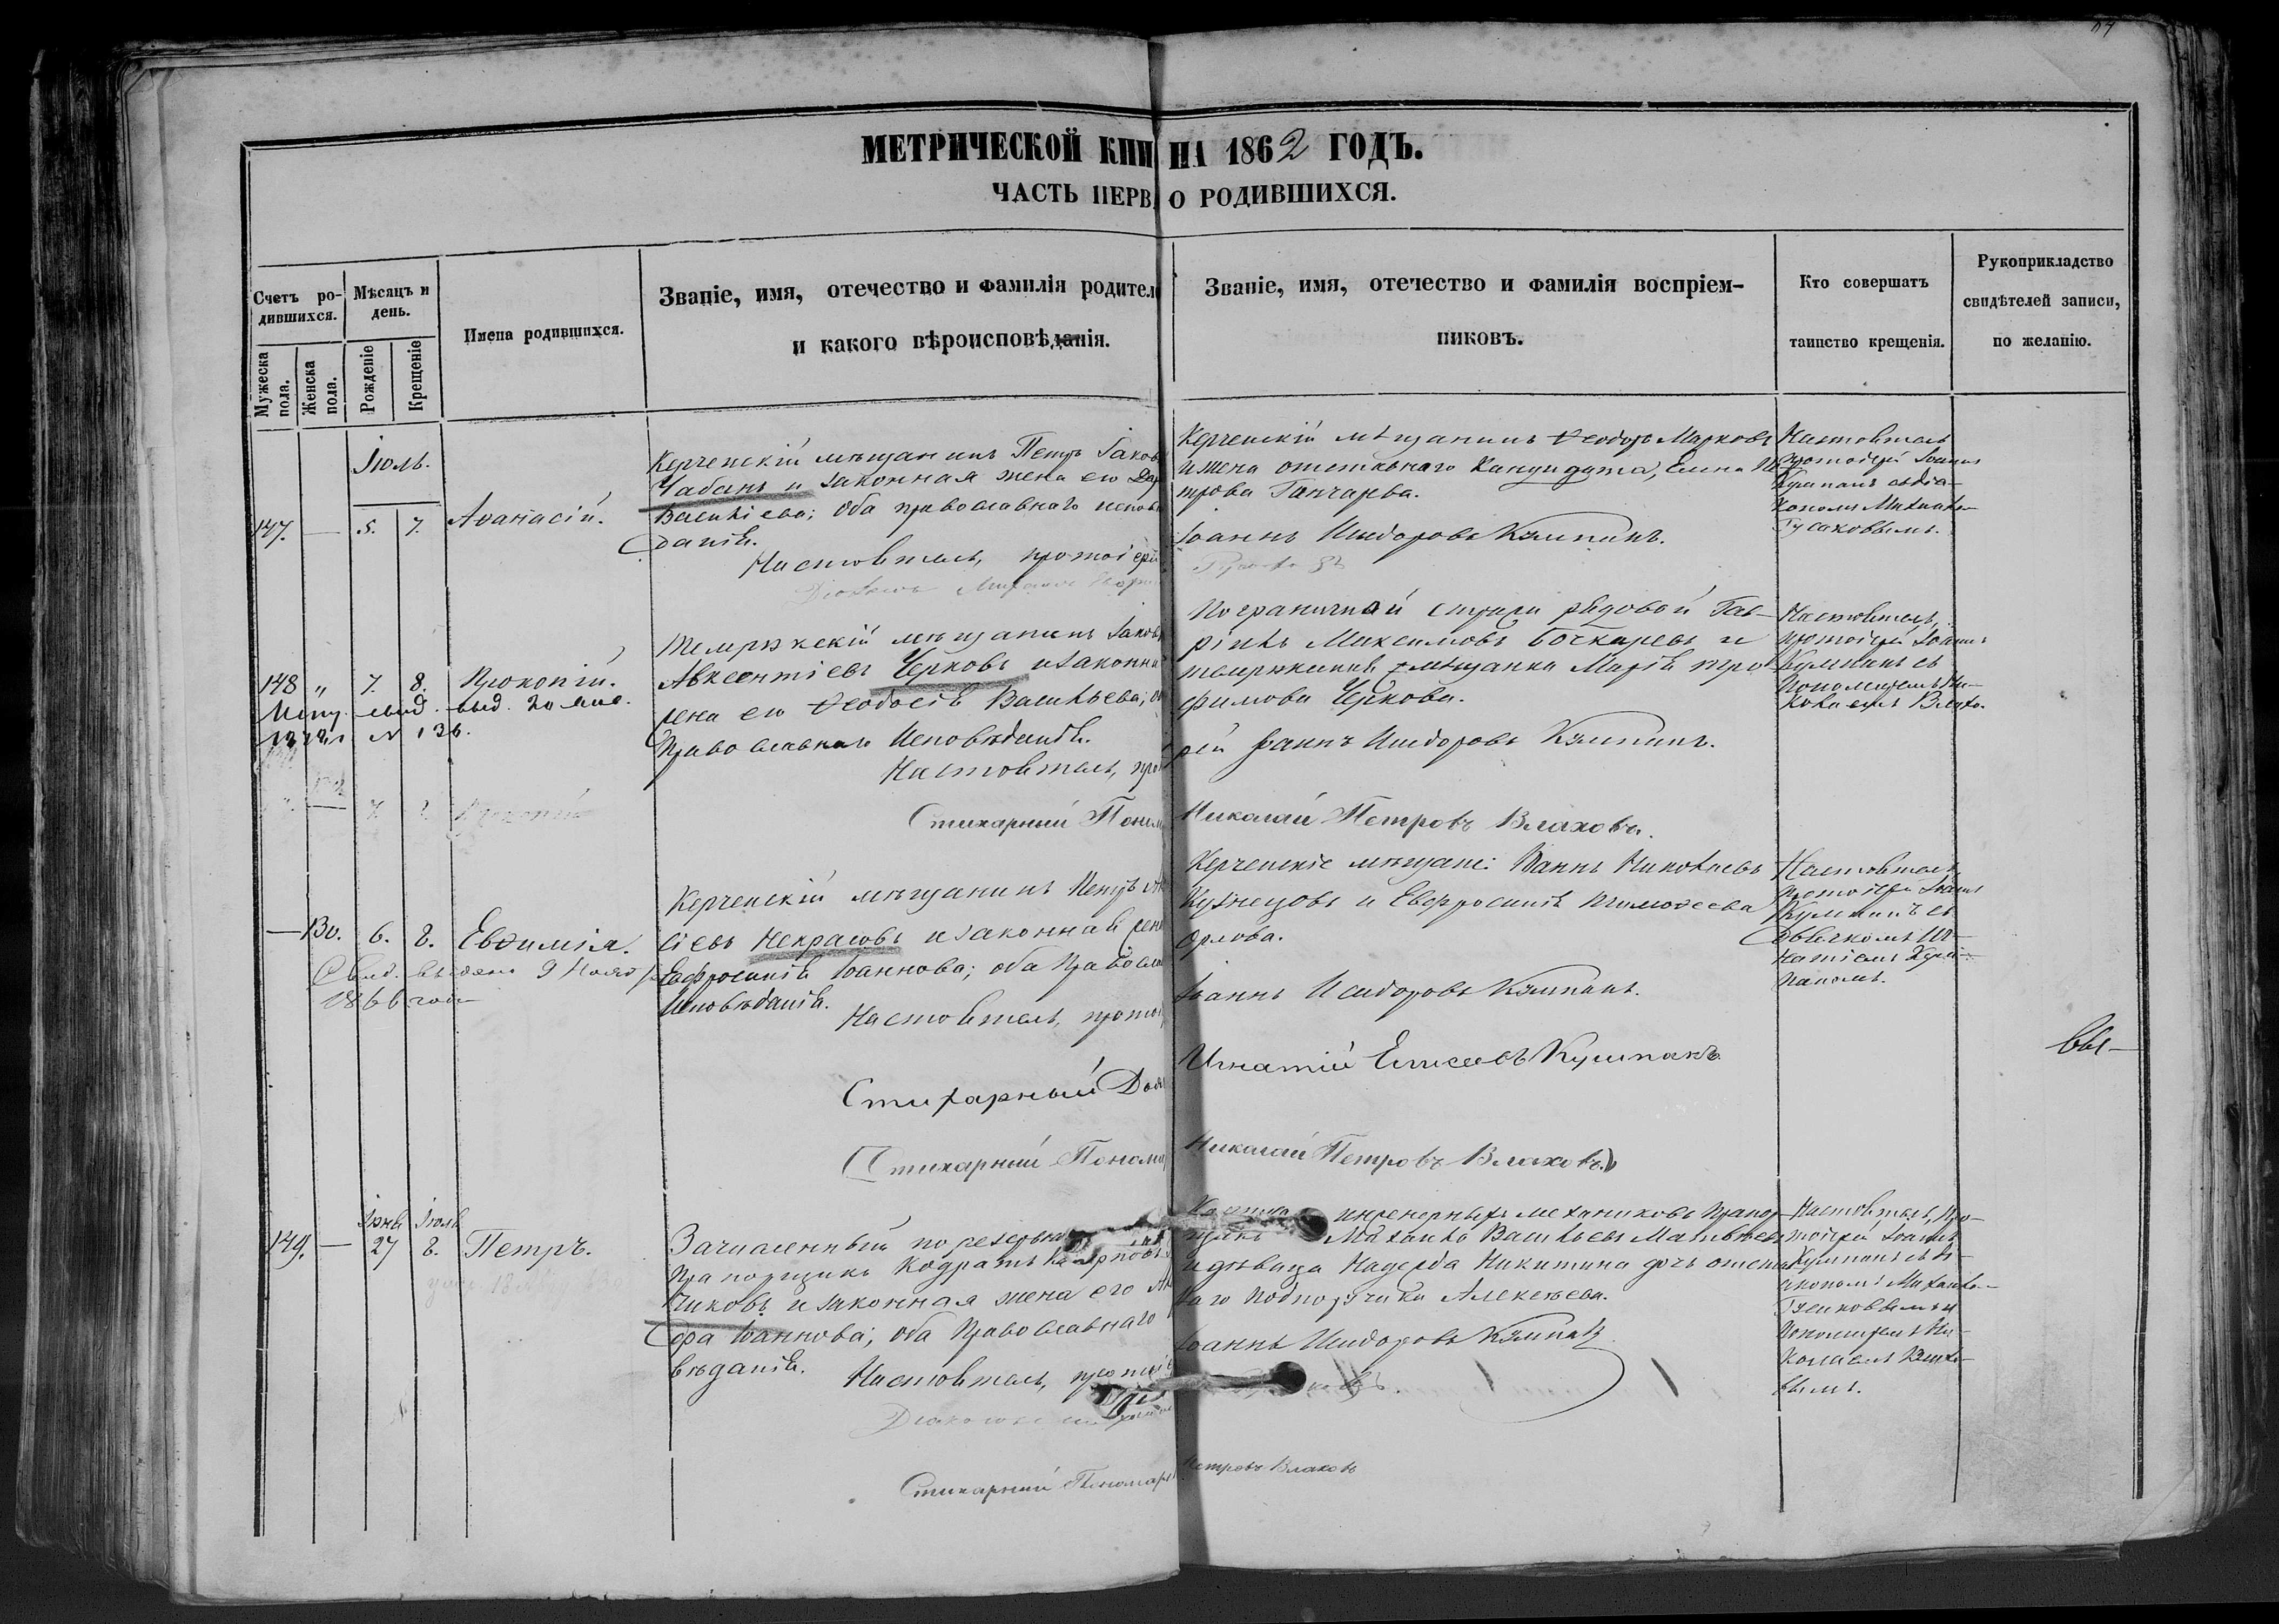 МЕТРИЧЕСКОЙ КНИ НА 1862 ГОДЪ.
ЧАСТЬ ПЕРВ О РОДИВШИХСЯ.
Счетъ ро-
дившихся.
Мужеска
пола.
Женска
пола.
Мѣсяцъ и
день.
Рожденіе
Крещеніе
Имена родившихся.
Званіе, имя, отечество и фамилія родител
и какого вѣроисповѣданія.
Званіе, имя, отечество и фамилія воспріем-
никовъ.
Кто совершатъ
таинство крещенія.
Рукоприкладство
свидѣтелей записи,
по желанію.
Іюль.
147. — 5. 7. Аѳанасій.
Керченскій мѣщанинъ Петръ Іаков
Чабанъ и законная жена его Дар
Василіева; оба православнаго испов
данія.
Настоятель, протоіерей
Діаконъ Михаилъ
Керченскій мѣщанинъ Ѳеодоръ Марковъ
и жена отставнаго Кандидата, Елена Пе
трова Ганчарева.
Іоаннъ Исидоровъ Кумпанъ.
Настоятель
протоіерей Іоаннъ
Кумпанъ съ діа-
кономъ Михаило-
Гусаковымъ.
148 „ 7. 8. Прокопій.
свид. выд. 20
№ 136.
Темрюкскій мѣщанинъ Іаковъ
Авксентіевъ Черковъ и законна
жена его Ѳеодосія Васильева; о
Православнаго Исповѣданія.
Настоятель, прот
Стихарный Поном
Пограничной стражи рядовой Гав-
ріилъ Максимовъ Бочкаревъ и
темрюкская мѣщанка Марія Тро
фимова Черкова.
рей Іоаннъ Исидоровъ Кумпанъ.
Николай Петровъ Влаховъ.
Настоятель,
протоіерей Іоаннъ
Кумпанъ съ
Пономаремъ Ни-
колаемъ Влахо.
— 130. 6. 8. Евѳимія.
Свид. выдано 9 Нояб
1866 года
Керченскій мѣщанинъ Петръ
сіевъ Некрасовъ и законная жен
Евфросинія Іоаннова; оба Правосла
Исповѣданія.
Настоятель, прото
Стихарный Дья
Стихарный Понома
Керченскіе мѣщане: Іоаннъ Николаевъ
Кузнецовъ и Евфросинія Тимоѳеева
Орлова.
Іоаннъ Исидоровъ Кумпанъ.
Игнатій Елисеевъ Кумпанъ
Николай Петровъ Влаховъ
Настоятель,
протоіерей Іоаннъ
Кумпанъ съ
дьячкомъ Иг-
натіемъ Кум-
паномъ.
вы-
Іюнь Іюль
149. — 27 8. Петръ.
Зачисленный по резерв
Прапорщикъ Кодратъ Карповъ
чиковъ и законная жена его
фа Іоаннова; оба Православнаго
вѣданія.
Настоятель, протоіе
Діаконъ
Стихарный Пономарь
инженерныхъ механиковъ Прапор-
щикъ Михаилъ Васильевъ Матвѣевъ
и дѣвица Надежда Никитина дочь отстав
наго подпоручика Алексѣева.
Іоаннъ Исидоровъ Кумпанъ
Петровъ Влаховъ
Настоятель, Про-
тоіерей Іоаннъ
Кумпанъ съ Ді-
акономъ Михаило-
Гусаковымъ и
Пономаремъ Ни-
колаемъ Влахо-
вымъ.